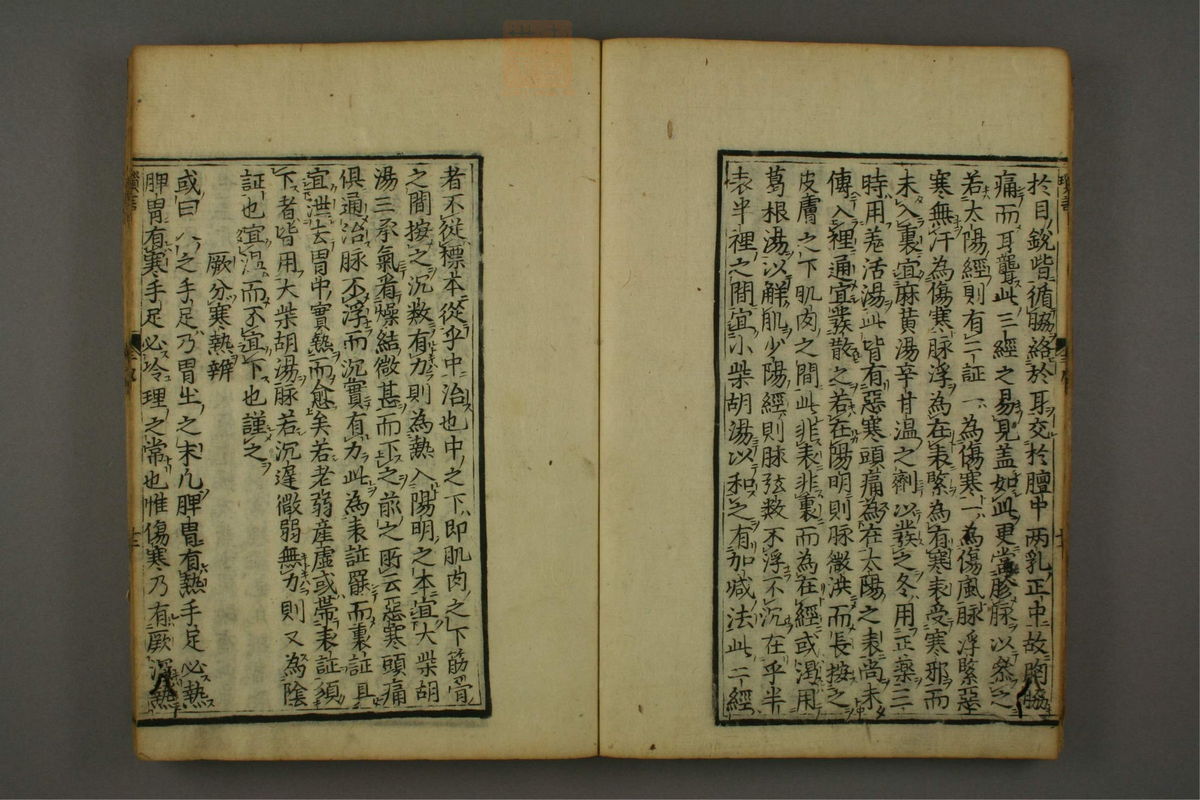 於目銳眥循脇絡於耳交於膻中两乳正中故胸脇
痛而耳聾此三經之易見蓋如此更當胗脉以祭之
若太陽經則有二証一為傷寒一為傷風脉浮緊惡
寒無汗為傷寒脉浮為在表緊為有寒表受寒邪而
未入裏宜麻黄湯辛甘温之劑以發之冬用正藥三
時用羗活湯此皆有惡寒頭痛為在太陽之表尚未
傳入裡通宜發散之若在陽明則脉微洪而長按之
皮膚之下肌肉之間此非表非裏而為在經或渴用
葛根湯以觧肌少陽經則脉弦数不浮不沉在乎半
表半裡之間宜小柴胡湯以和之有加减法此二經
者不從標本從乎中治也中之下即肌肉之下筋骨
之間按之沉数有力則為熱入陽明之本宜大柴胡
湯三承氣看燥結微甚而下之前之所云惡寒頭痛
俱通治脉不浮而沉實有力此為表証罷而裏証具
宜泄去胃中實熱而愈矣若老弱産虚或帶表証須
下者皆用大柴胡湯脉若沉遅微弱無力則又為陰
証也宜温而不宜下也謹之
厥分寒熱辨
或曰人之手足乃胃土之末凡脾胃有熱手足必熱
脾胃有寒手足必冷理之常也惟傷寒乃有厥深熱